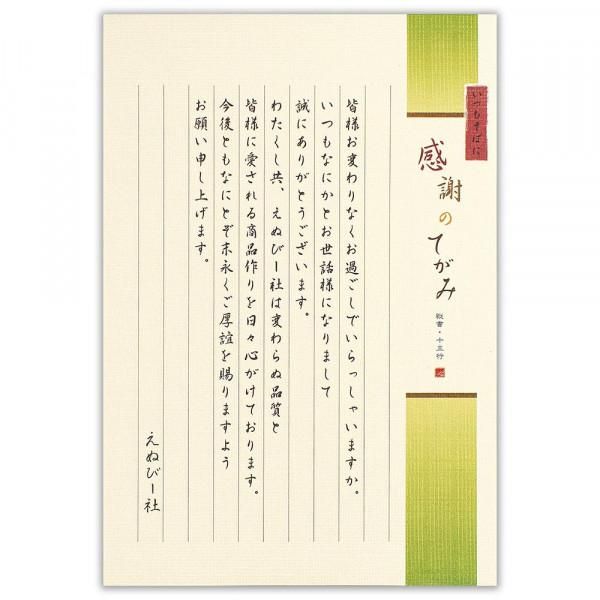 いつもそばに
感謝のてがみ
縦書・十五行
皆様お変わりなくお過ごしでいらっしゃいますか。
いつもなにかとお世話様になりまして
誠にありがとうございます。
わたくし共、えぬびー社は変わらぬ品質と
皆様に愛される商品作りを日々心がけております。
今後ともなにとぞ末永くご厚誼を賜りますよう
お願い申し上げます。
えぬびー社